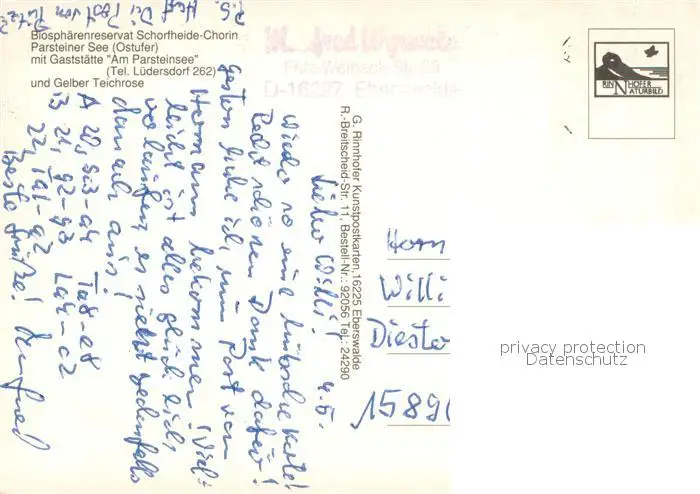 P.S. Hast Du Post von
Biosphärenreservat Schorfheide-Chorin
Parsteiner See (Ostufer)
mit Gaststätte "Am Parsteinsee"
(Tel. Lüdersdorf 262)
und Gelber Teichrose
D-16227 Eberswalde
RIN HOFER
NATURBILD
G. Rinnhofer Kunstpostkarten, 16225 Eberswalde
R.-Breitscheid-Str. 11, Bestell-Nr.: 92056 Tel.: 24290
4.5.
Lieber Willi!
Wieder so eine hübsche Karte!
Recht schönen Dank dafür!
Gestern habe ich nun Post von
Hermann bekommen. Viel-
leicht ist alles glücklich
verlaufen, es sieht jedenfalls
danach aus!
A 20, Sg3-a4 Ta8-e8
B 21, g2-g3 La4-c2
22, Ta1-a2
Beste Grüße! Manfred
Herrn
Willi
Diester
15890
privacy protection
Datenschutz